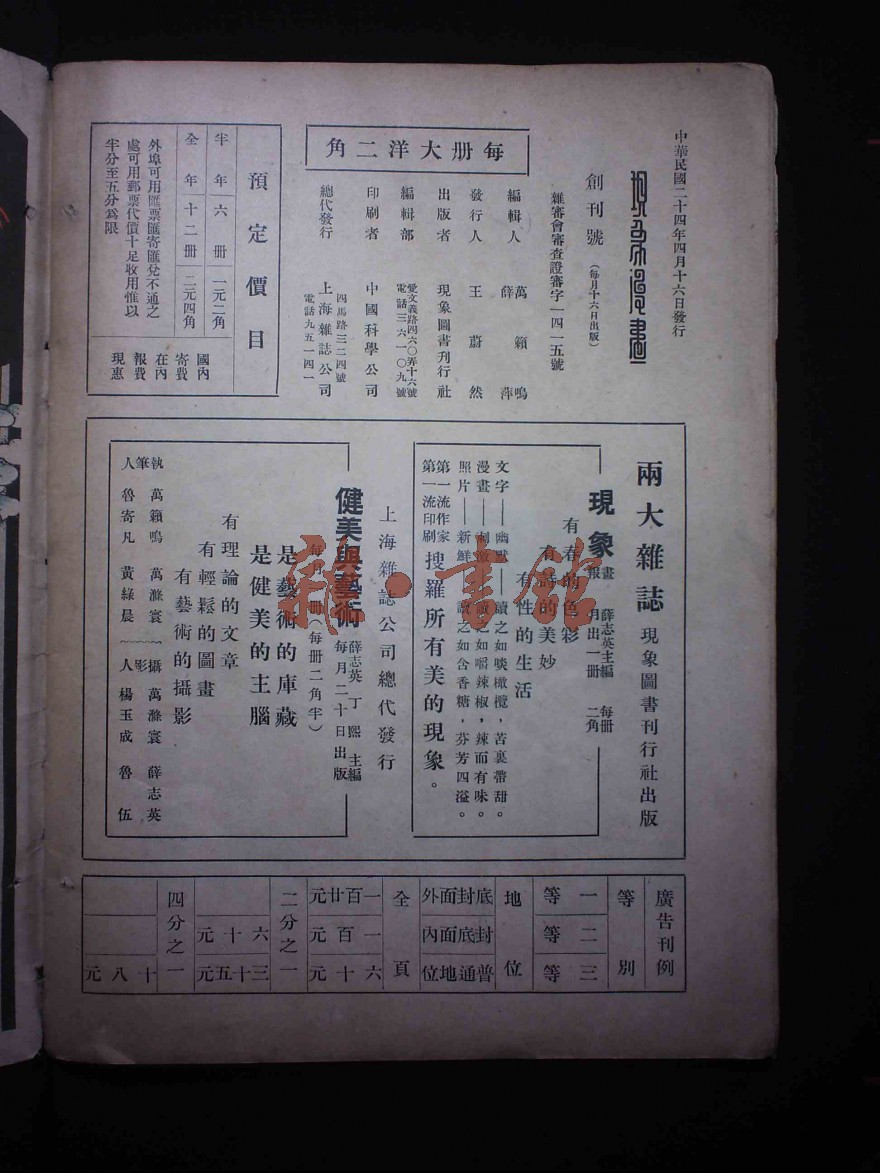 中華民國二十四年四月十六日發行
現象漫畫
創刊號（每月十六日出版）
雜審會審查證審字一四一五號
編輯人 萬籟鳴 薛萍
發行人 王蔚然
出版者 現象圖書刊行社
編輯部 愛文義路四六〇弄十六號
電話三六一〇九號
印刷者 中國科學公司
總代發行 上海雜誌公司
四馬路三二四號
電話九五一四一
每册大洋二角
預定價目
半年六册 一元二角
全年十二册 二元四角
國內寄費在內 報費現惠
外埠可用匯票匯寄匯兌不通之
處可用郵票代價十足收用惟以
半分至五分爲限
兩大雜誌 現象圖書刊行社出版
現象畫報 薛志英主編 月出一册 每册二角
有春的色彩
有詩的美妙
有性的生活
文字——幽默——讀之如啖橄欖，苦裏帶甜。
漫畫——刺激——讀之如嚼辣椒，辣而有味。
照片——新鮮——讀之如含香糖，芬芳四溢。
第一流作家
第一流印刷
搜羅所有美的現象。
上海雜誌公司總代發行
健美與藝術 薛志英 丁熙 主編
每月二十日出版
每月一册（每册二角半）
是藝術的庫藏
是健美的主腦
有理論的文章
有輕鬆的圖畫
有藝術的攝影
執筆人 萬籟鳴 萬滌寰 魯寄凡 黃綠晨
攝影人 萬滌寰 薛志英 楊玉成 魯伍
廣告刊例
等別 一等 二等 三等
地位 底封面外 封底面內 普通地位
全頁 一百廿元 一百元 六十元
二分之一 六十元 三十五元
四分之一 十八元
雜·書館